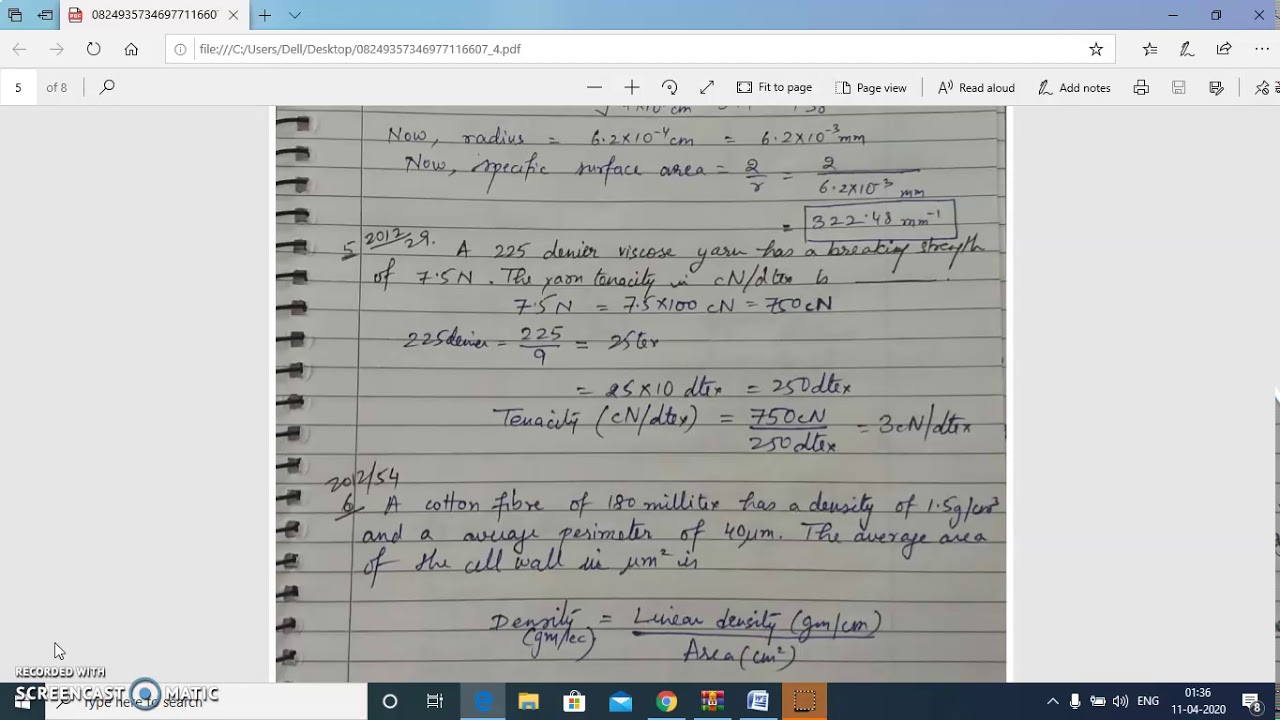 08249357346977116607
file:///C:/Users/Dell/Desktop/08249357346977116607_4.pdf
5 of 8
Fit to page
Page view
Read aloud
Add notes
Share
Now, radius = 6.2×10⁻⁴cm = 6.2×10⁻³mm
Now, specific surface area = 2/r = 2/6.2×10⁻³ mm
= 322.48 mm⁻¹
5 2012/29. A 225 denier viscose yarn has a breaking strength
of 7.5N. The yarn tenacity in cN/dtex is ______.
7.5N = 7.5×100 cN = 750cN
225denier = 225/9 = 25tex
= 25×10 dtex = 250dtex
Tenacity (cN/dtex) = 750cN/250dtex = 3cN/dtex
2012/54
6 A cotton fibre of 180 millitex has a density of 1.5g/cm³
and a average perimeter of 40μm. The average area
of the cell wall in μm² is
Density (gm/cc) = Linear density (gm/cm)/Area(cm²)
RECORDED WITH
SCREENCAST MATIC
Type here to search
ENG
01:36
11-04-2020
8